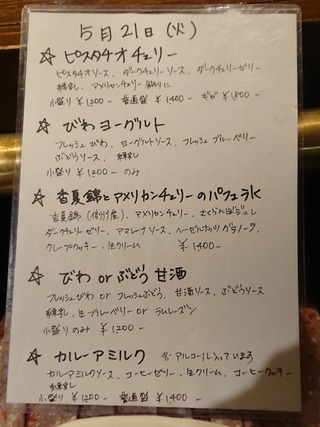 5月21日(火)
☆ ピスタチオチェリー
ピスタチオソース、ダークチェリーソース、ダークチェリーゼリー
練乳、アメリカンチェリー
小盛り ¥1200- 普通盛 ¥1400- ギガ ¥1800-
☆ びわヨーグルト
フレッシュびわ、ヨーグルトソース、フレッシュブルーベリー
ぶどうソース、練乳
小盛り ¥1200- のみ
☆ 香夏錦とアメリカンチェリーのパフェラ氷
香夏錦(信州産)、アメリカンチェリー、さくらんぼジュレ
ダークチェリーゼリー、アマレーナソース、ヘーゼルナッツグラノーラ、
クレープクッキー、生クリーム ¥1400-
☆ びわ or ぶどう 甘酒
フレッシュびわ or フレッシュぶどう、甘酒ソース、ぶどうソース
練乳、生ブルーベリー or ラムレーズン
小盛りのみ ¥1200-
☆ カルーアミルク ※アルコール入っています
カルーアミルクソース、コーヒーゼリー、生クリーム、コーヒークッキー
練乳
小盛り ¥1200- 普通盛 ¥1400-